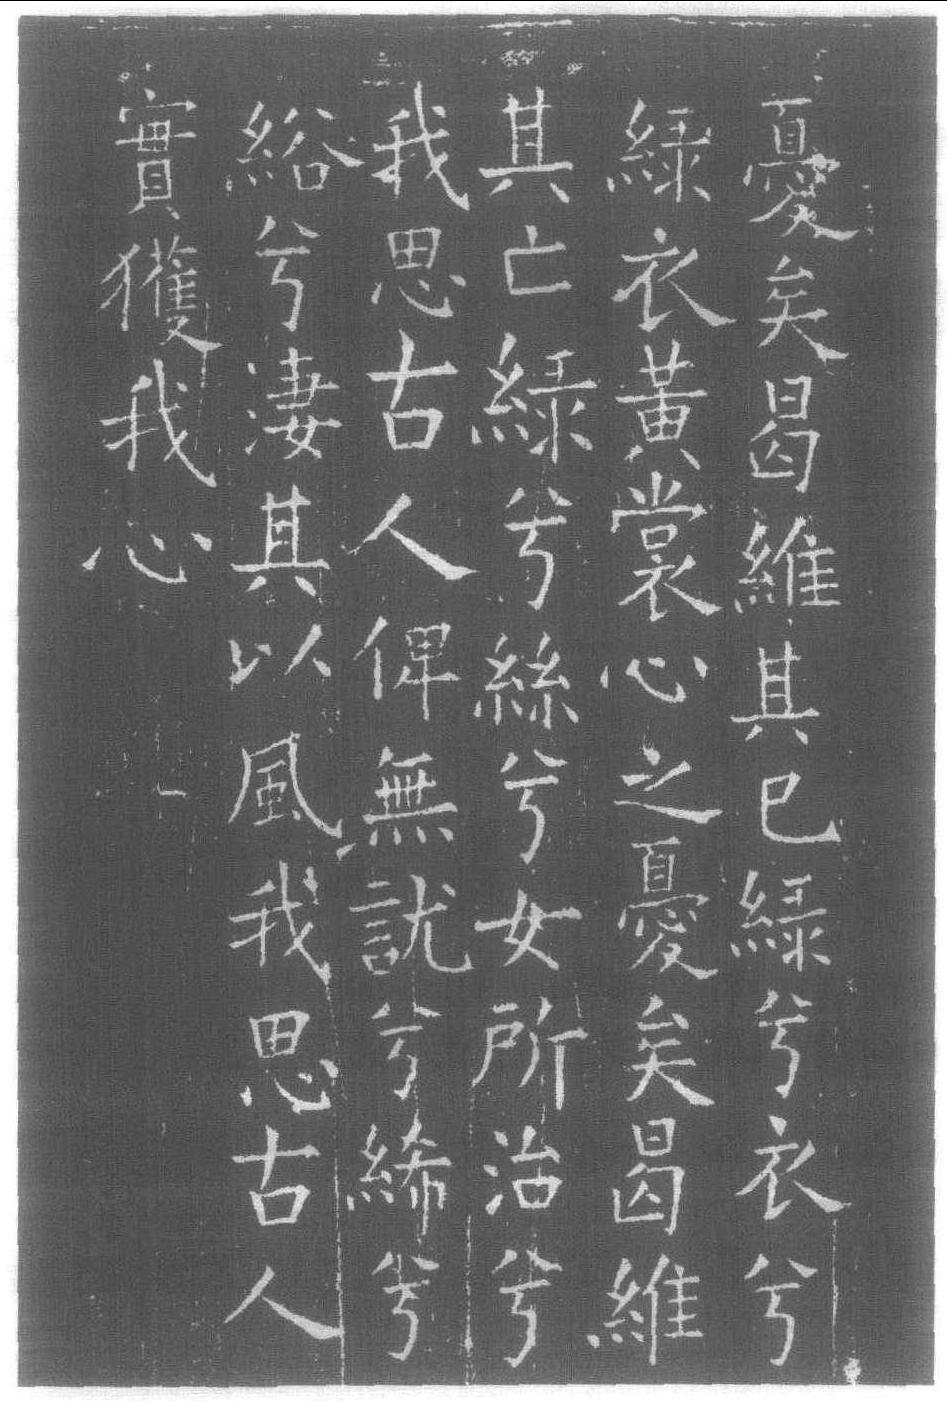 憂矣曷維其已綠兮衣兮
綠衣黃裳心之憂矣曷維
其亡綠兮絲兮女所治兮
我思古人俾無訧兮絺兮
綌兮淒其以風我思古人
實獲我心